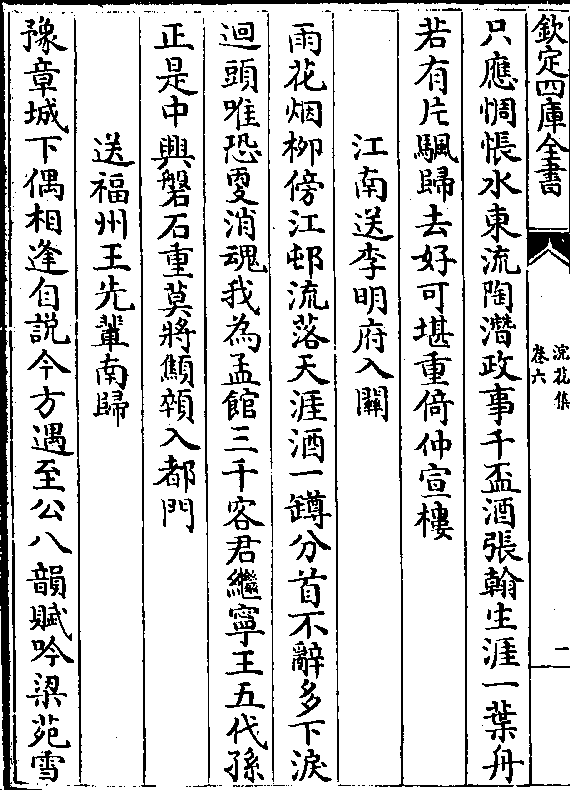 欽定四庫全書
浣花集
卷六
二
只應惆悵水東流陶潛政事千盃酒張翰生涯一葉舟
若有片颿歸去好可堪重倚仲宣樓
江南送李明府入關
雨花烟柳傍江邨流落天涯酒一罇分首不辭多下淚
迴頭唯恐更消魂我為孟館三千客君繼寧王五代孫
正是中興磐石重莫將顦顇入都門
送福州王先輩南歸
豫章城下偶相逢自説今方遇至公八韻賦吟梁苑雪